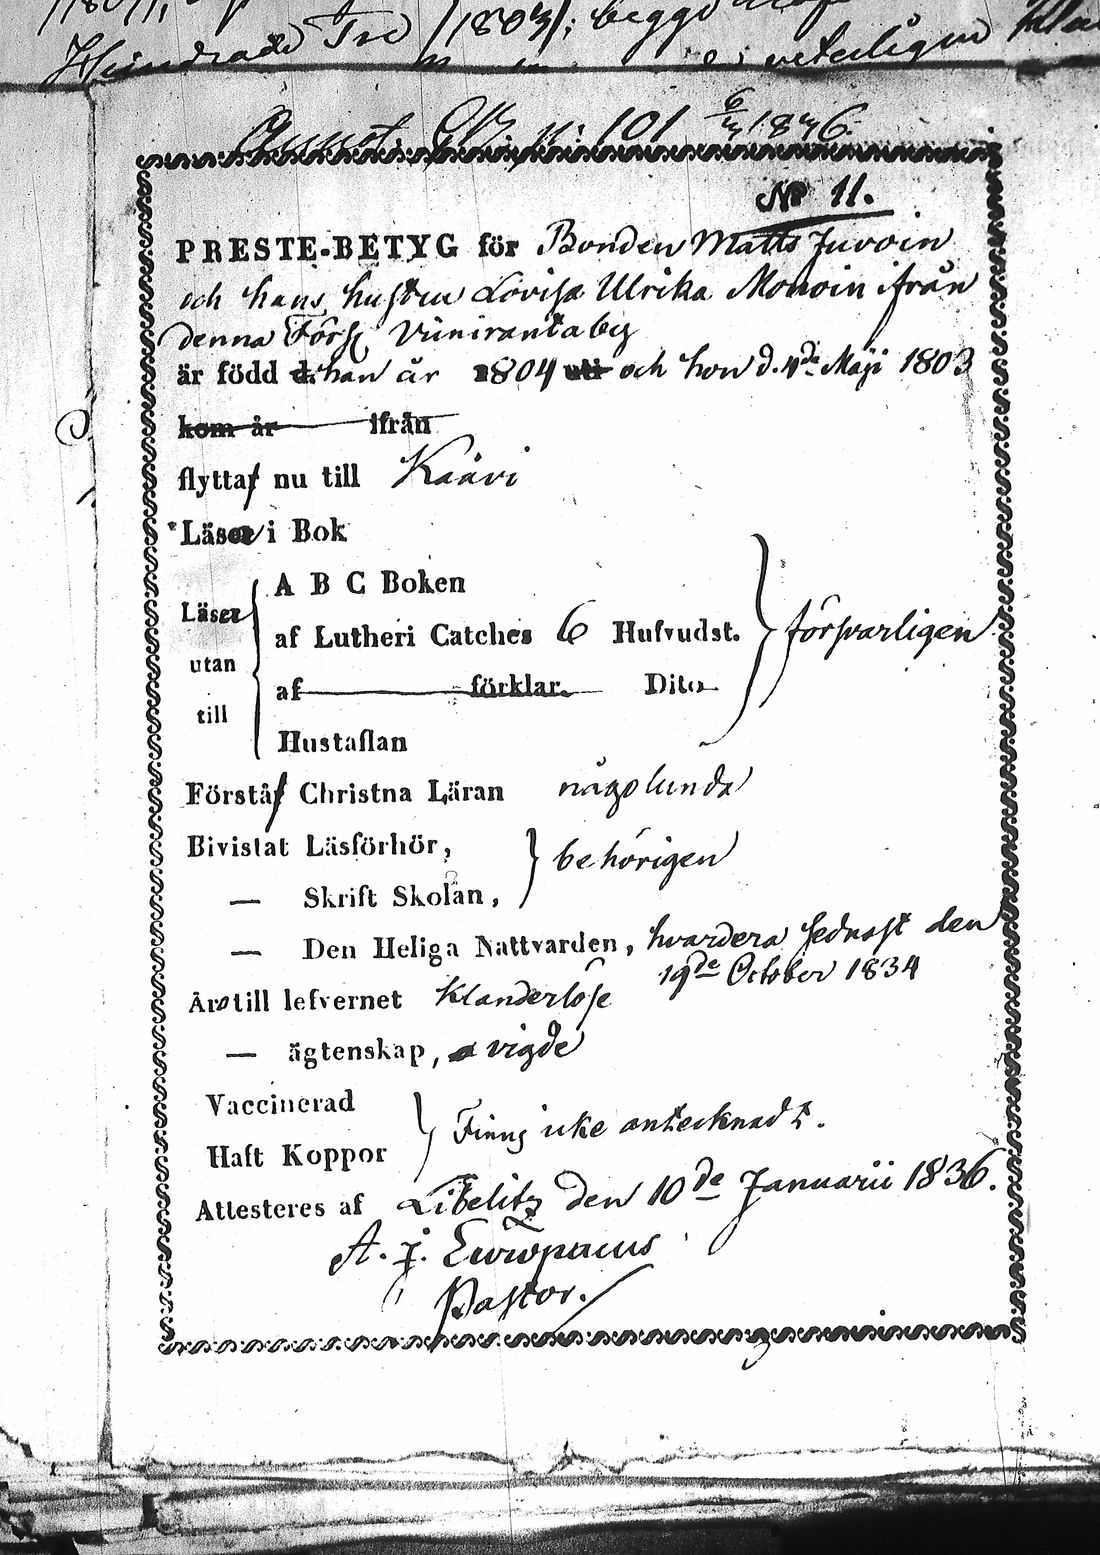 1801,
Heindrade Tre 1803; begge
veterligen
p: 101 6/3 1836.
No 11.
PRESTE-BETYG för Bonden Matts Juvoin
och hans hustru Lovisa Ulrika Monoin ifrån
denna Förs: Viiniranta by
är född d. han år 1804 uti och hon d. 4de Maji 1803
kom år ifrån
flyttaf nu till Kaavi
Läser i Bok
A B C Boken
Läser
af Lutheri Catches 6 Hufvudst. försvarligen
utan
af förklar. Dito
till
Hustaflan
Förstå Christna Läran någolunda
Bivistat Läsförhör, behörigen
— Skrift Skolan,
— Den Heliga Nattvarden, hvardera sednast den
19de October 1834
Äro till lefvernet klanderlöse
— ägtenskap, vigde
Vaccinerad
Finns icke antecknadt.
Haft Koppor
Attesteres af Libelitz den 10de Januarii 1836.
A. J. Europaeus
Pastor.